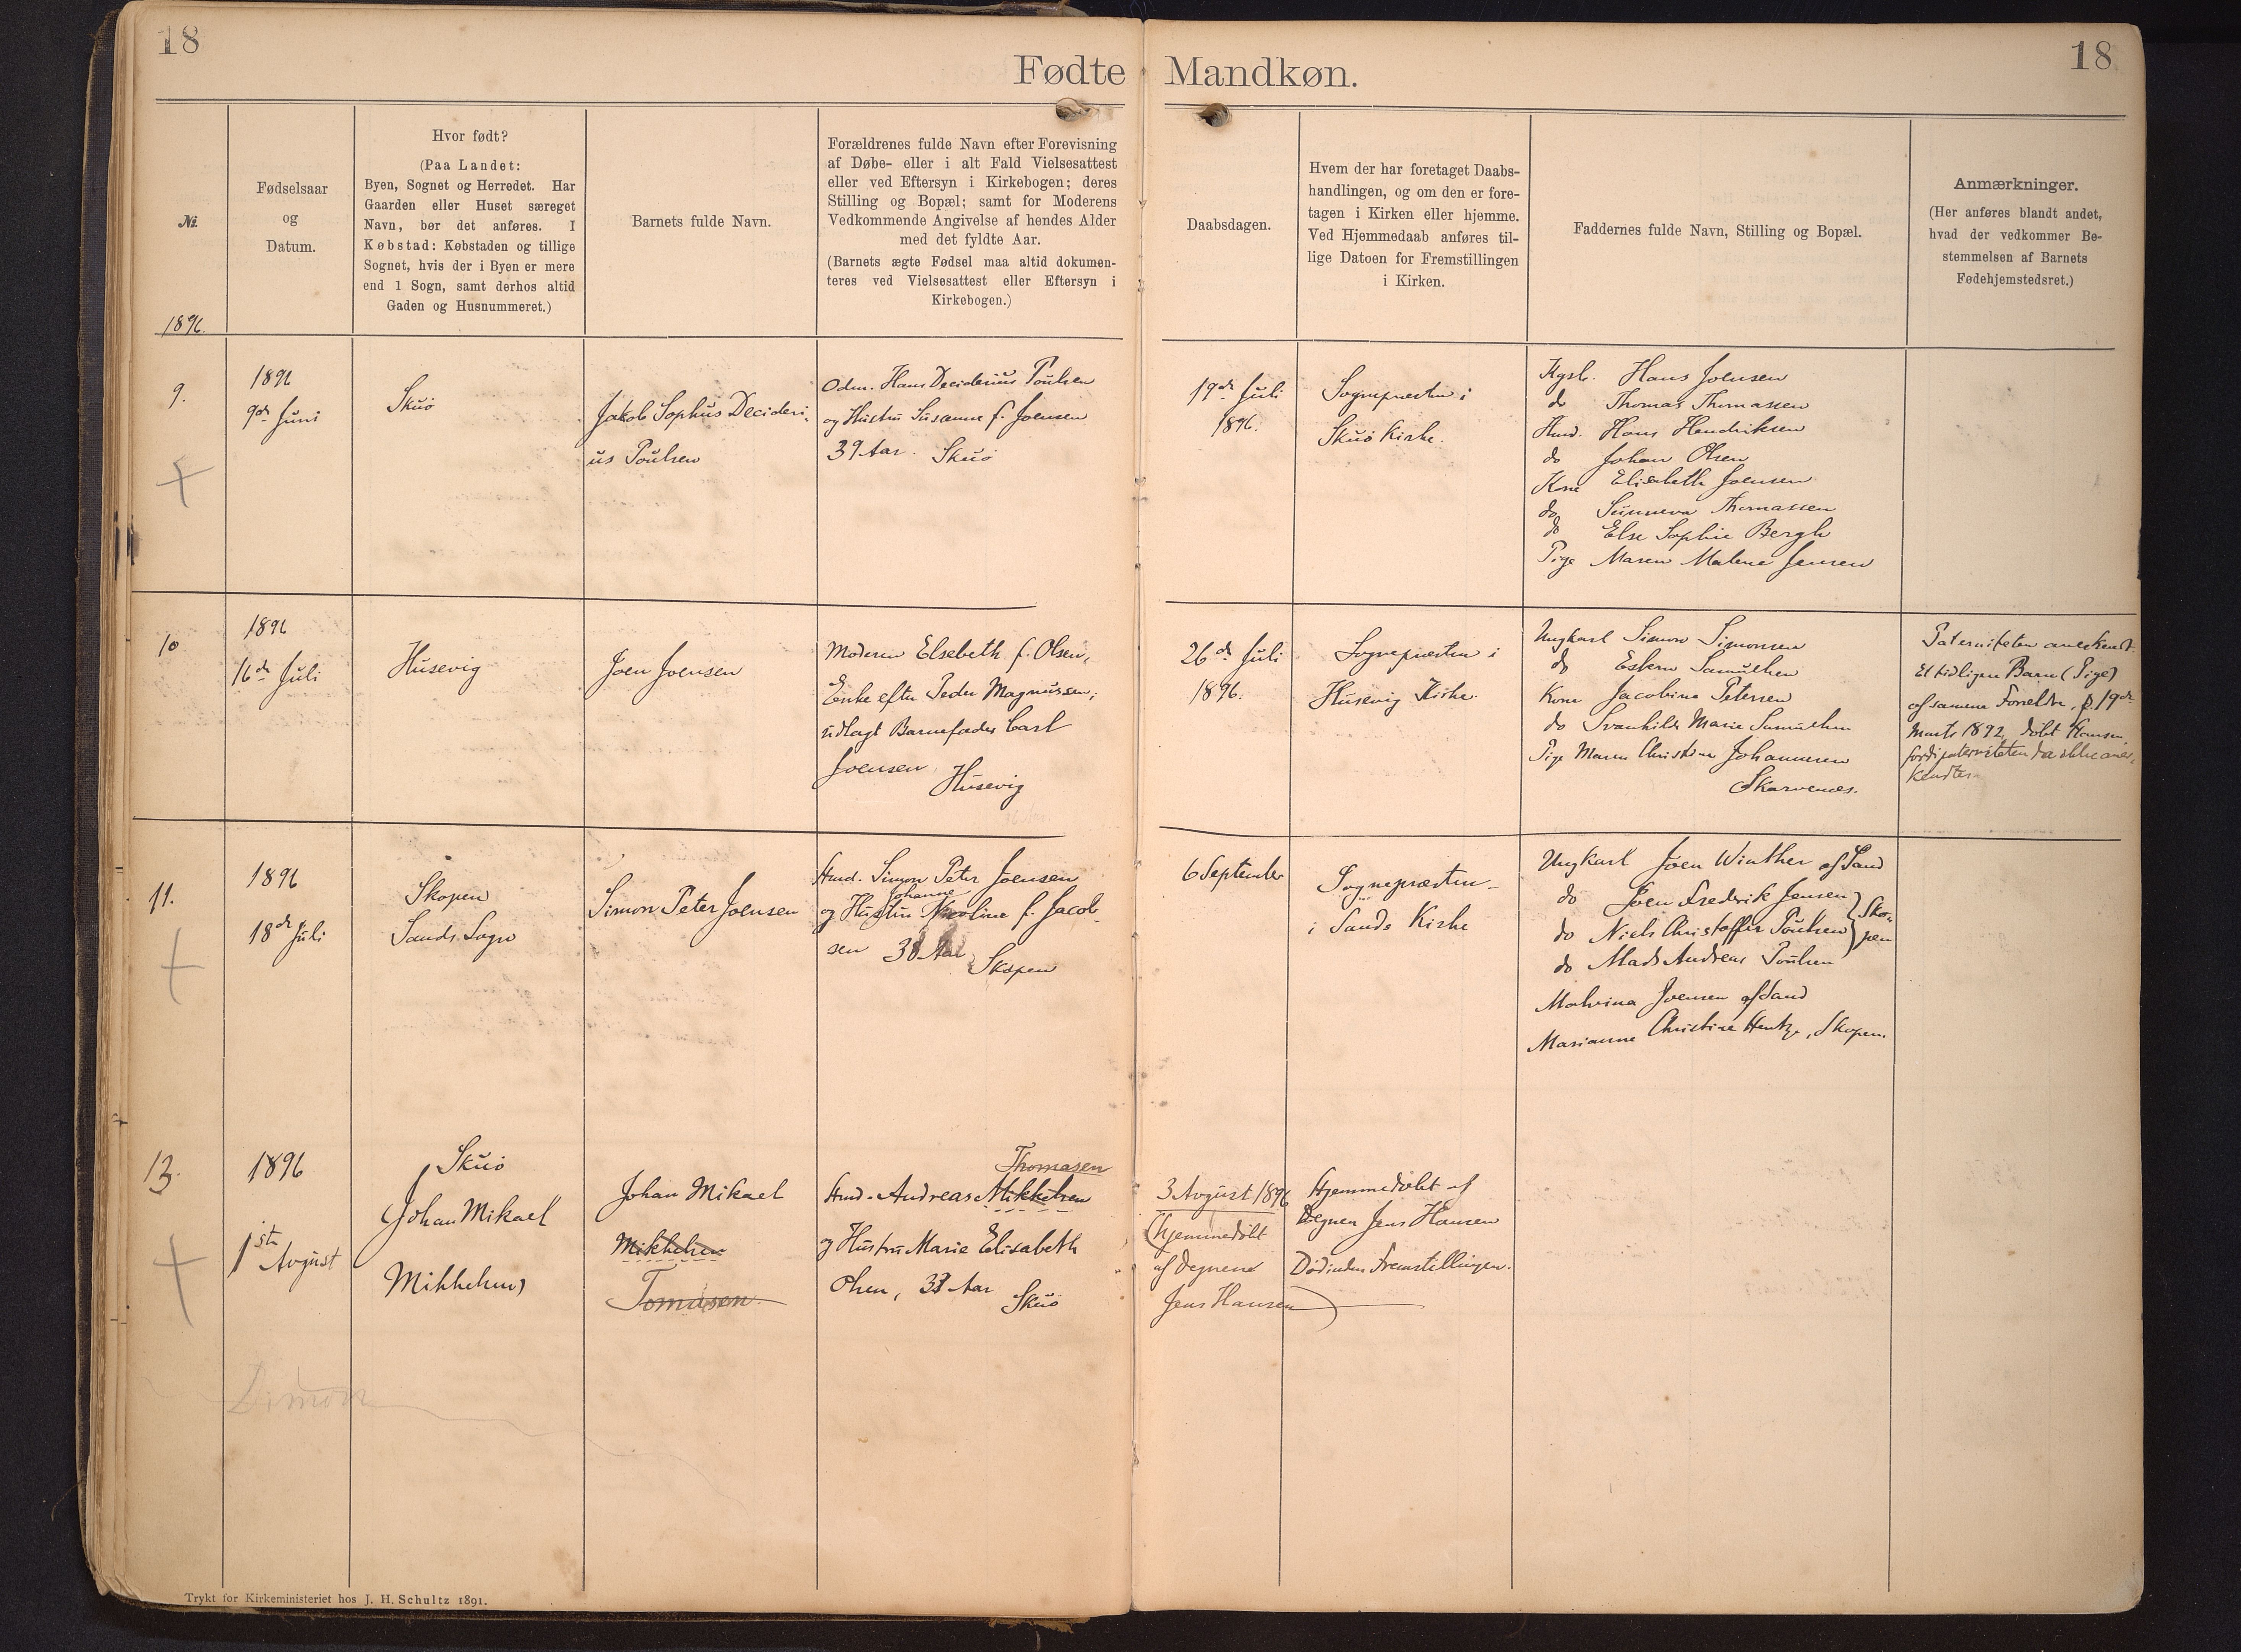 18
18
Fødte Mandkøn.
№
1896.
Fødselsaar
og
Datum.
Hvor født?
(Paa Landet:
Byen, Sognet og Herredet. Har
Gaarden eller Huset særeget
Navn, bør det anføres. I
Købstad: Købstaden og tillige
Sognet, hvis der i Byen er mere
end 1 Sogn, samt derhos altid
Gaden og Husnummeret.)
Barnets fulde Navn.
Forældrenes fulde Navn efter Forevisning
af Døbe- eller i alt Fald Vielsesattest
eller ved Eftersyn i Kirkebogen; deres
Stilling og Bopæl; samt for Moderens
Vedkommende Angivelse af hendes Alder
med det fyldte Aar.
(Barnets ægte Fødsel maa altid dokumen-
teres ved Vielsesattest eller Eftersyn i
Kirkebogen.)
Daabsdagen.
Hvem der har foretaget Daabs-
handlingen, og om den er fore-
tagen i Kirken eller hjemme.
Ved Hjemmedaab anføres til-
lige Datoen for Fremstillingen
i Kirken.
Faddernes fulde Navn, Stilling og Bopæl.
Anmærkninger.
(Her anføres blandt andet,
hvad der vedkommer Be-
stemmelsen af Barnets
Fødehjemstedsret.)
9.
1896
9de Juni
Skuö
Jakob Sophus Decideri-
us Poulsen
Odm. Hans Deciderius Poulsen
og Hustru Susanne f. Joensen
39 Aar. Skuö
19de Juli
1896.
Sognepræsten i
Skuö Kirke.
Hans Joensen
do Thomas Thomassen
Hmd. Hans Hendriksen
do Johan Olsen
Kone Elisabeth Joensen
do Sunneva Thomassen
do Else Sophie Bergh
Pige Maren Malene Jensen
10
1896
16de Juli
Husevig
Joen Joensen
Moderen Elsebeth f. Olsen,
Enke efter Peder Magnussen;
udlagt Barnefader Carl
Joensen, Husevig
26de Juli
1896.
Sognepræsten i
Husevig Kirke.
Ungkarl Simon Simonsen
do Esbern Samuelsen
Kone Jacobina Petersen
do Svanhilde Marie Samuelsen
Pige Maren Christine Johannesen
Skarvenæs.
Paterniteten anerkendt.
Et tidligere Barn (Pige)
af samme Forældre, f. 19de
Marts 1892, döbt Hansen,
fordi paterniteten da ikke aner-
kendtes.
11.
1896
18de Juli
Skopen
Sands Sogn
Simon Peter Joensen
Hmd. Simon Peter Joensen
Johanne
og Hustru Nicoline f. Jacob-
sen 38 Aar Skopen
6 September
Sognepræsten
i Sands Kirke
Ungkarl Joen Winther af Sand
do Joen Frederik Jensen
do Niels Christoffer Poulsen } Sko-
pen
do Mads Andreas Poulsen
Malvina Joensen af Sand
Marianne Christine Hentze, Skopen.
13.
1896
1ste Avgust
Skuö
(Johan Mikael
Mikkelsen)
Johan Mikael
Mikkelsen
Tomasen.
Thomasen
Hmd. Andreas Mikkelsen
og Hustru Marie Elisabeth
Olsen, 37 Aar Skuö
3 Avgust 1896
(hjemmedöbt
af Degnen
Jens Hansen)
Hjemmedöbt af
Degnen Jens Hansen
Död inden Fremstillingen.
Trykt for Kirkeministeriet hos J. H. Schultz 1891.